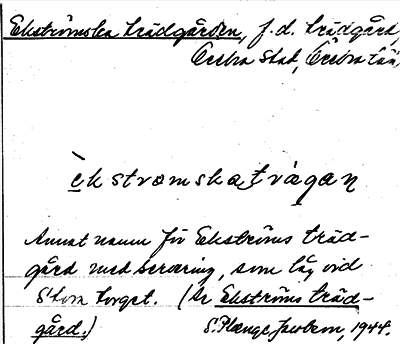 Ekströmska trädgården, f.d. trädgård,
Örebro stad, Örebro län
èkstrœmska tràgan
Annat namn för Ekströms träd-
gård med servering, som låg vid
Stora torget. (Se Ekströms träd-
gård.) S. Plange Jacobson, 1944.